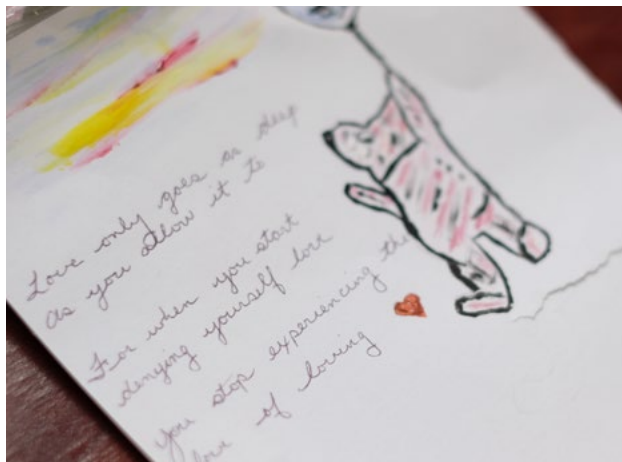 Love only goes as deep
as you allow it to
For when you start
denying yourself love
you stop experiencing the
love of loving